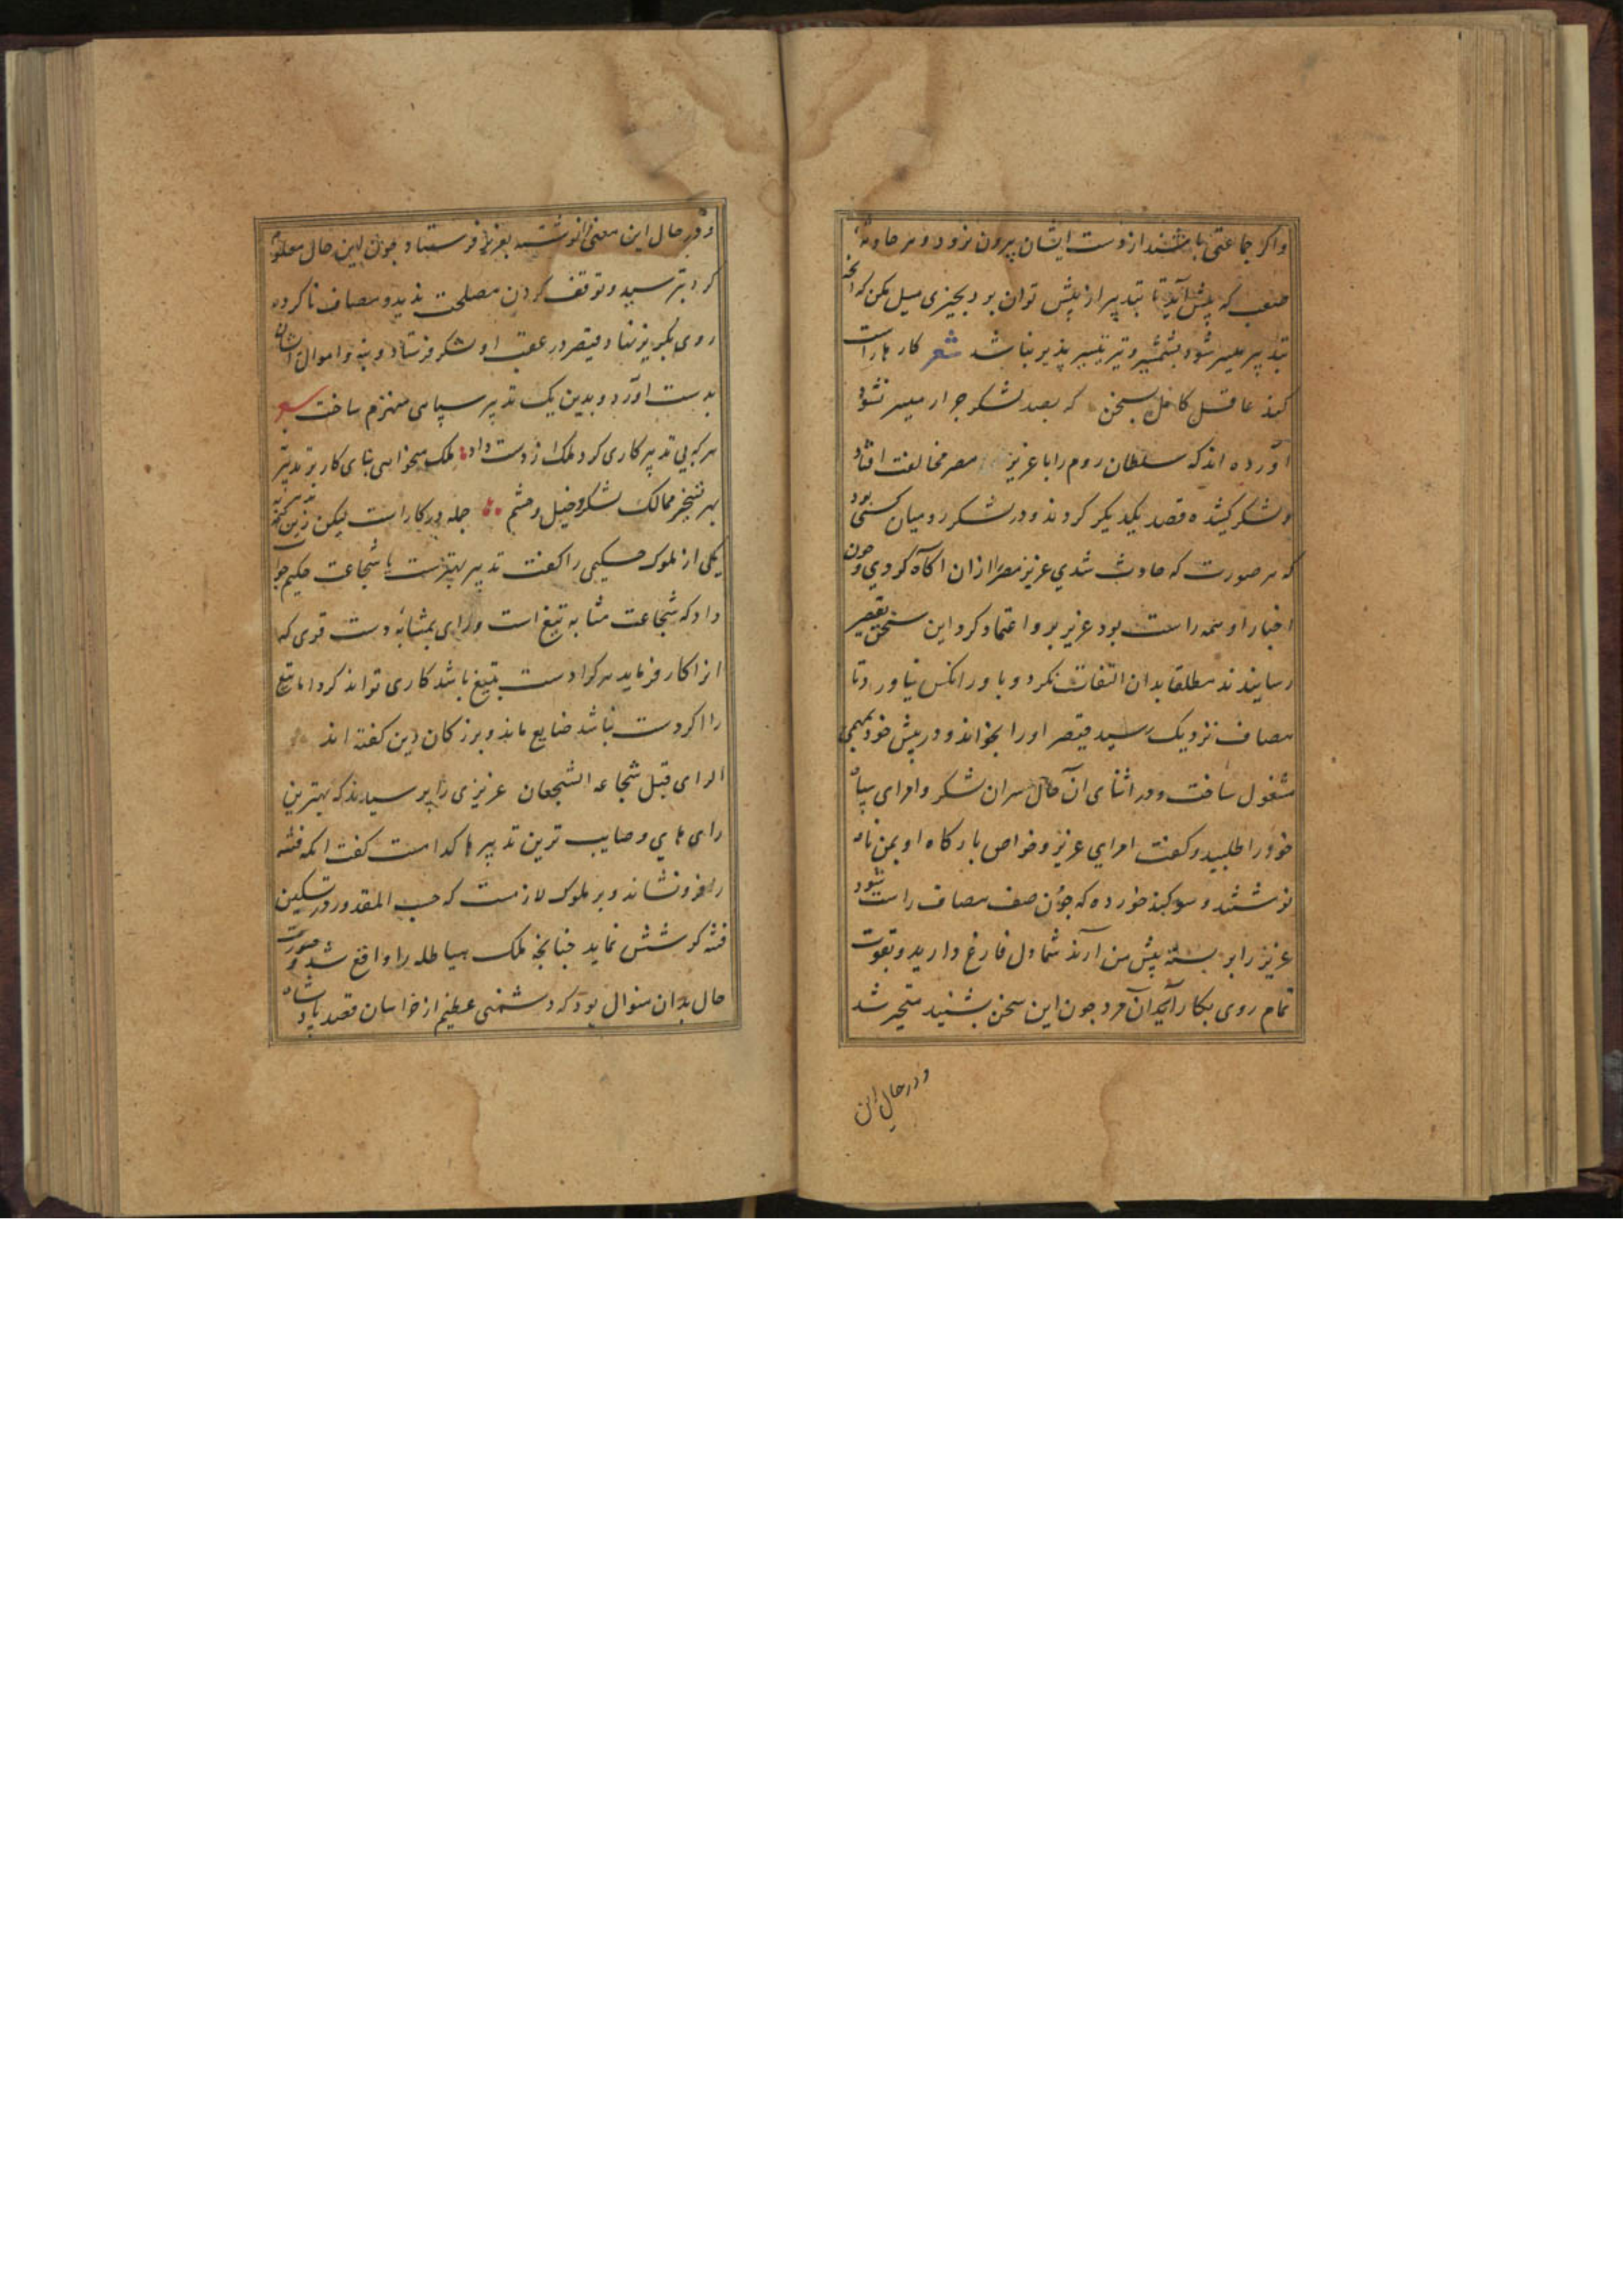 و اکر جماعتی باشند از دست ایشان بیرون نرود و هر حادثه
صعب که پیش آید تا بتدبیر از پیش توان برد بچیزی میل مکن که انچه
بتدبیر میسر شود بشمشیر و تیر تیسیر پذیر نباشد شعر کارها راست
کند عاقل کامل بسخن که بصد لشکر جرار میسر نشود
آورده اند که سلطان روم را با عزیز مصر مخالفت افتاد
و لشکر کشیده قصد یکدیکر کردند و در لشکر رومیان کسی بود
که هر صورت که حادث شدی عزیز مصر را ازان اکاه کردی و چون
اخبار او همه راست بود عزیز برو اعتماد کرد این سخن بقیصر
رسانیدند مطلقا بدان التفات نکرد و با ور انکس نیاورد تا
مصاف نزدیک رسید قیصر او را بخواند و در پیش خود بمهمی
مشغول ساخت و در اثنای آن حال سران لشکر و امرای سپاه
خود را طلبید و کفت امرای عزیز و خواص بارکاه او بمن نامه
نوشتند و سوکند خورده که چون صف مصاف راست شود
عزیز را بر بسته پیش من آرند شما دل فارغ دارید و بقوت
تمام روی بکار آرید آن مرد چون این سخن بشنید متحیر شد
و در حال این
و در حال این معنی نوشته بعزیز فرستاد چون این حال معلوم
کرد بترسید و توقف کردن مصلحت ندید و مصاف ناکرده
روی بکریز نهاد قیصر در عقب او لشکر فرستاد و بنه و اموال ایشان
بدست آورد و بدین یک تدبیر سپاهی منهزم ساخت شعر
هر که بی تدبیر کاری کرد ملک از دست داد ملک میخواهی بنای کار بر تدبیر نه
بهر تسخیر ممالک لشکر و خیل و حشم جمله در کار است لیکن زین همه تدبیر به
یکی از ملوک حکیمی را کفت تدبیر بهترست یا شجاعت حکیم جواب
داد که شجاعت مثابه تیغ است و رای بمثابه دست قوی که
انرا کار فرماید هر کرا دست بی تیغ باشد کاری تواند کرد اما تیغ
را اکر دست نباشد ضایع ماند و بزرکان دین کفته اند
الرای قبل شجاعه الشجعان عزیزی را پرسیدند که بهترین
رای های و صایب ترین تدبیرها کدامست کفت انکه فتنه
را فرو نشاند و بر ملوک لازمست که حسب المقدور در تسکین
فتنه کوشش نماید چنانچه ملک هیاطله را واقع شد و صورت
حال بدان منوال بود که دشمنی عظیم از خراسان قصد پادشاه